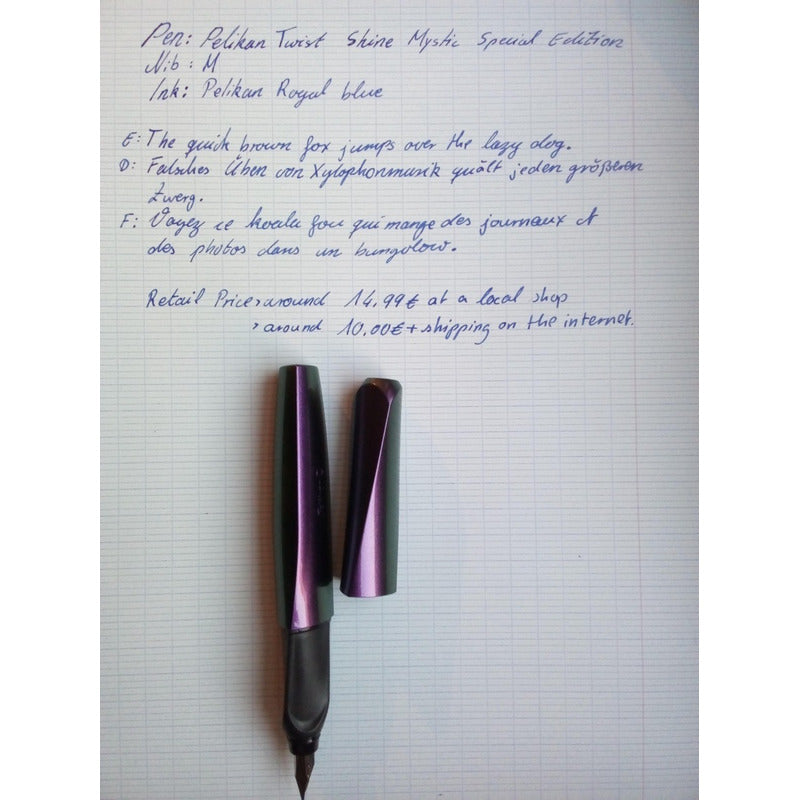 Pen: Pelikan Twist Shine Mystic Special Edition
Nib: M
Ink: Pelikan Royal blue
E: The quick brown fox jumps over the lazy dog.
D: Falsches Üben von Xylophonmusik quält jeden größeren
Zwerg.
F: Voyez ce koala fou qui mange des journaux et
des photos dans un bungalow.
Retail Price > around 14.99€ at a local shop
> around 10.00€ + shipping on the internet.